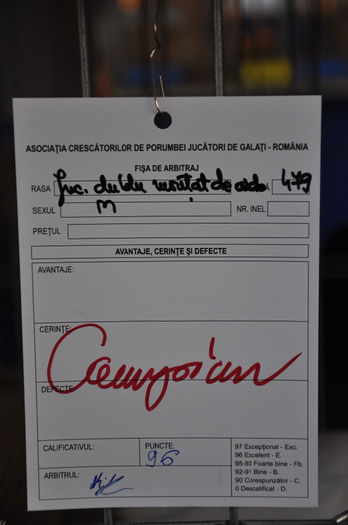 ASOCIAȚIA CRESCĂTORILOR DE PORUMBEI JUCĂTORI DE GALAȚI - ROMÂNIA
FIȘA DE ARBITRAJ
RASA Juc. de 479
SEXUL M NR. INEL
PREȚUL
AVANTAJE, CERINȚE ȘI DEFECTE
AVANTAJE:
CERINȚE
Campion
DEFECTE
CALIFICATIVUL: PUNCTE: 96
ARBITRUL:
97 Excepțional - Exc.
96 Excelent - E.
95-93 Foarte bine - Fb.
92-91 Bine - B.
90 Corespunzător - C.
0 Descalificat - D.